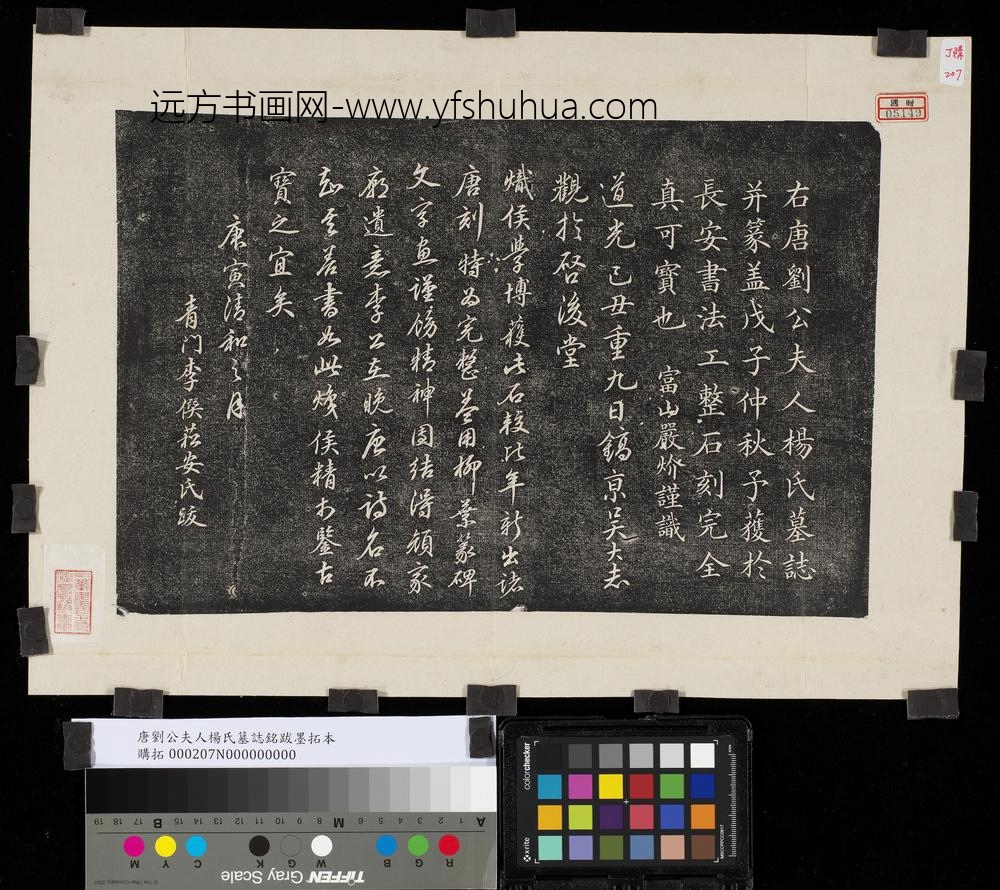 远方书画网-www.yfshuhua.com
购
207
國贈
05149
右唐劉公夫人楊氏墓誌
并篆盖戊子仲秋予獲於
長安書法工整石刻完全
真可寶也 富山嚴炌謹識
道光己丑重九日鎬京吴大志
觀於啓後堂
熾侯學博獲此石較比年新出諸
唐刻特為完整蓋用柳葉篆碑
文字畫謹飭精神團結得顔家
廟遺意李公在晚唐以詩名不
知其善書如此熾侯精於鑒古
寶之宜矣
庚寅清和之月
青门李僎菘安氏跋
唐劉公夫人楊氏墓誌銘跋墨拓本
購拓 000207N000000000
A 1 2 3 4 5 6 M 8 9 10 11 12 13 14 15 B 17 18 19
R G B W G K C Y M
TIFFEN Gray Scale
© The Tiffen Company, 2007
colorchecker
x-rite
MSCCPPCC0817
mm